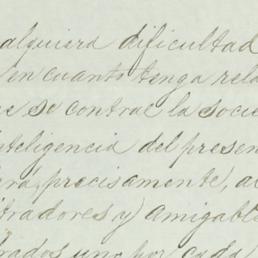 alquiera dificultad
en cuanto tenga rela
se contrae la socie
nteligencia del presen
erá, precisamente, a
tradores y amigable
brados uno por cada